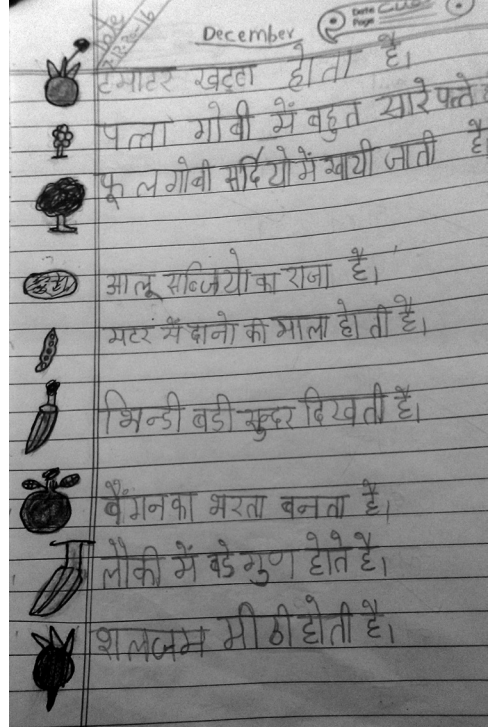 December
Date
Page
टमाटर खट्टा होता है।
पत्ता गोबी में बहुत सारे पत्ते
फूलगोबी सर्दियो में खायी जाती है
आलू सब्जियो का राजा है।
मटर में दानो की माला होती है।
भिन्डी बडी सुन्दर दिखती है।
बैंगन का भरता बनता है।
लौकी में बडे गुण होते है।
शलजम मीठी होती है।